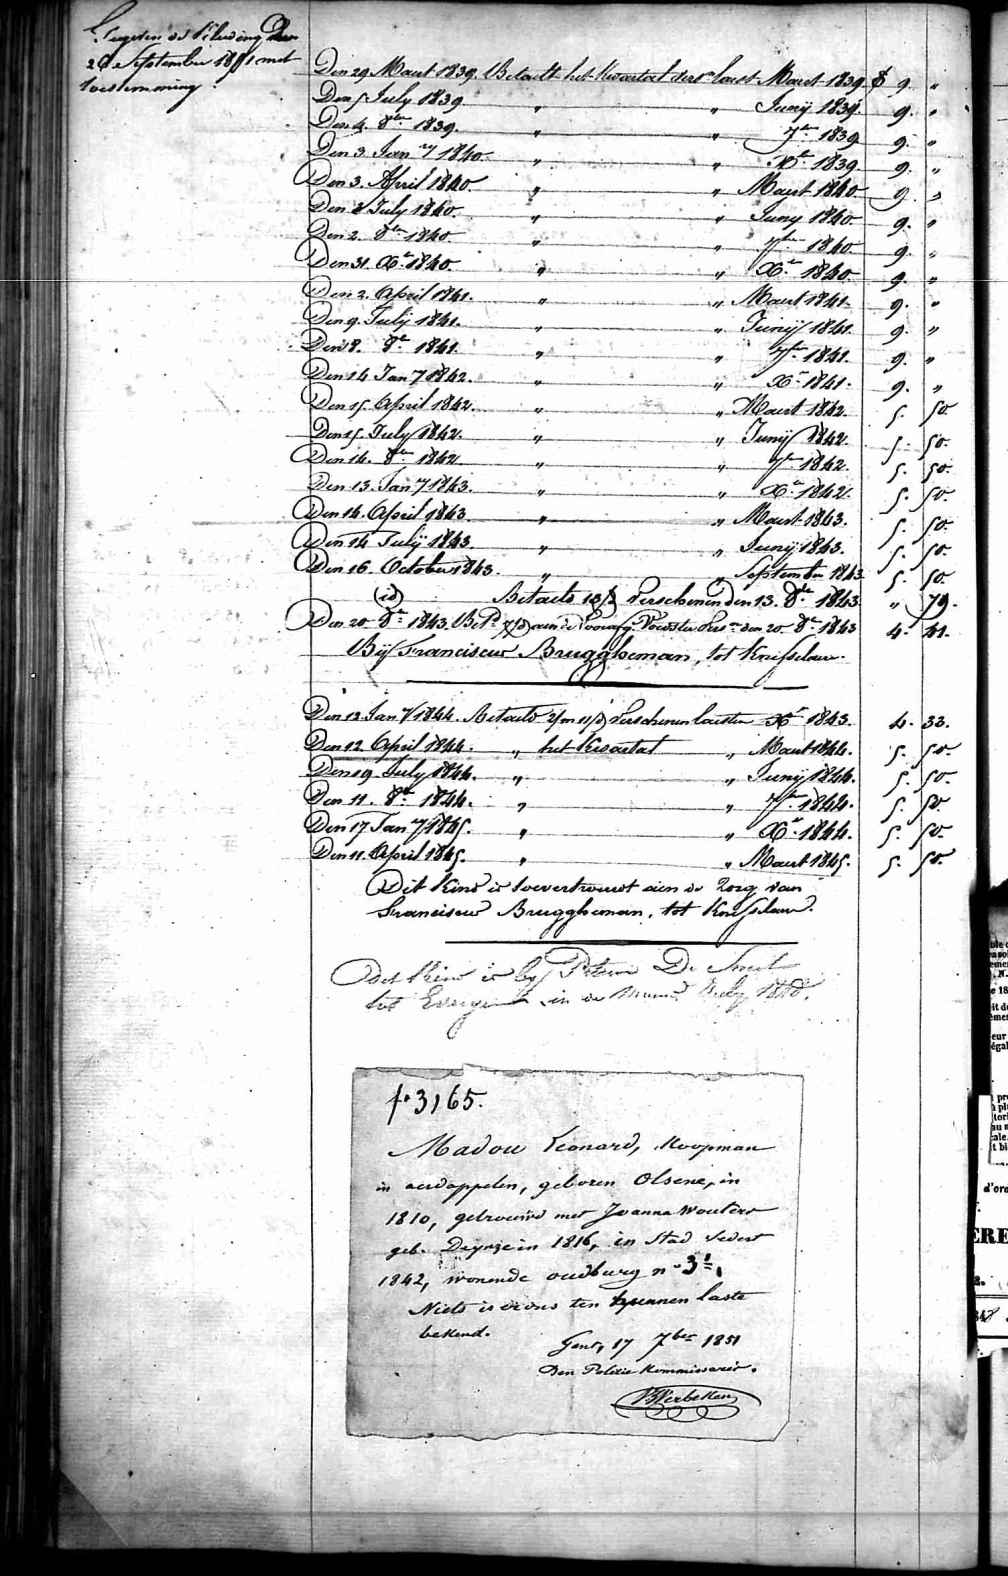 26e September 1851 met
toestemming
Den 29 Maart 1839 Betaelt het Kwartael verse. laest Maert 1839 f 9. "
Den 5 July 1839 " " Junij 1839. 9. "
Den 4. 8ber 1839. " " 7ber 1839 9. "
Den 3. Jany 1840. " " Xbr 1839. 9. "
Den 3. April 1840 " " Maert 1840 9. "
Den 3 July 1840. " " Juny 1840 9. "
Den 2. 8ber 1840. " " 7ber 1840 9. "
Den 31. Xbr 1840. " " Xbr 1840 9. "
Den 2. April 1841. " " Maert 1841. 9. "
Den 9. Julij 1841. " " Junij 1841. 9. "
Den 8. 8br 1841. " " 7br 1841. 9. "
Den 14 Jany 1842. " " Xbr 1841. 9. "
Den 15. April 1842. " " Maert 1842. 5. 50
Den 15. July 1842. " " Junij 1842. 5. 50.
Den 14. 8ber 1842 " " 7br 1842. 5. 50.
Den 13. Jany 1843. " " Xbr 1842. 5. 50.
Den 14. April 1843. " " Maert 1843. 5. 50.
Den 14 Julij 1843. " " Junij 1843. 5. 50.
Den 16. October 1843. " " September 1843. 5. 50.
(id) Betaelt 13/d verschenen den 13. 8bre 1843 " 79.
Den 20 8br 1843. aen de Voedster den 20 8br 1843 4. 41.
Bij Franciscus Bruggheman, tot Knesselaer.
Den 12 Jany 1844. Betaelt 2/m 11/d verschenen laesten Xbr 1843. 4. 33.
Den 12 April 1844. " het Kwartael " Maert 1844. 5. 50.
Den 19 July 1844. " " Junij 1844. 5. 50.
Den 11. 8br 1844. " " 7br 1844. 5. 50.
Den 17 Jany 1845. " " Xbr 1844. 5. 50.
Den 11. April 1845. " " Maert 1845. 5. 50.
Dit Kind is toevertrouwt aen de Zorg van
Franciscus Bruggheman, tot Knesselaer.
Dit Kind is by De Smet
tot in de July
fo 3165.
Madou Leonard, Koopman
in aerdappelen, geboren Olsene, in
1810, getrouwd met Joanna Wouters
geb. Deynze in 1816, in Stad sedert
1842, wonende oudburg no 31,
Niets is er ons ten hunnen laste
bekend.
Gent, 17 7ber 1851
Den Polizie Kommissaris.
Verbeken